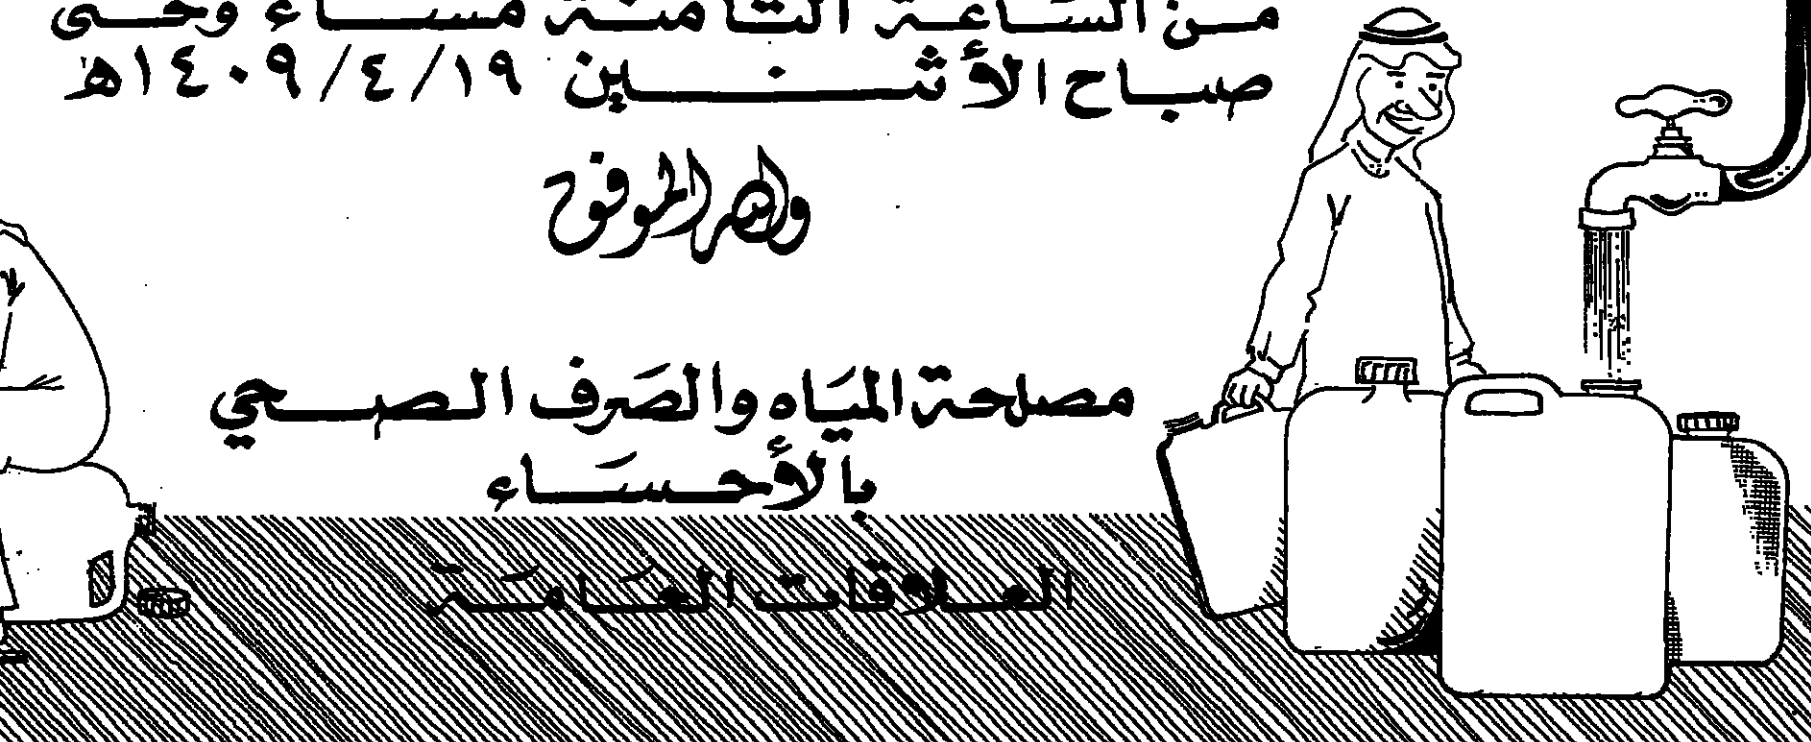 من الساعة الثامنة مساء وحتى
صباح الأثنين ١٤٠٩/٤/١٩هـ
والله الموفق
مصلحة المياه والصرف الصحي
بالأحساء
العلاقات العامة